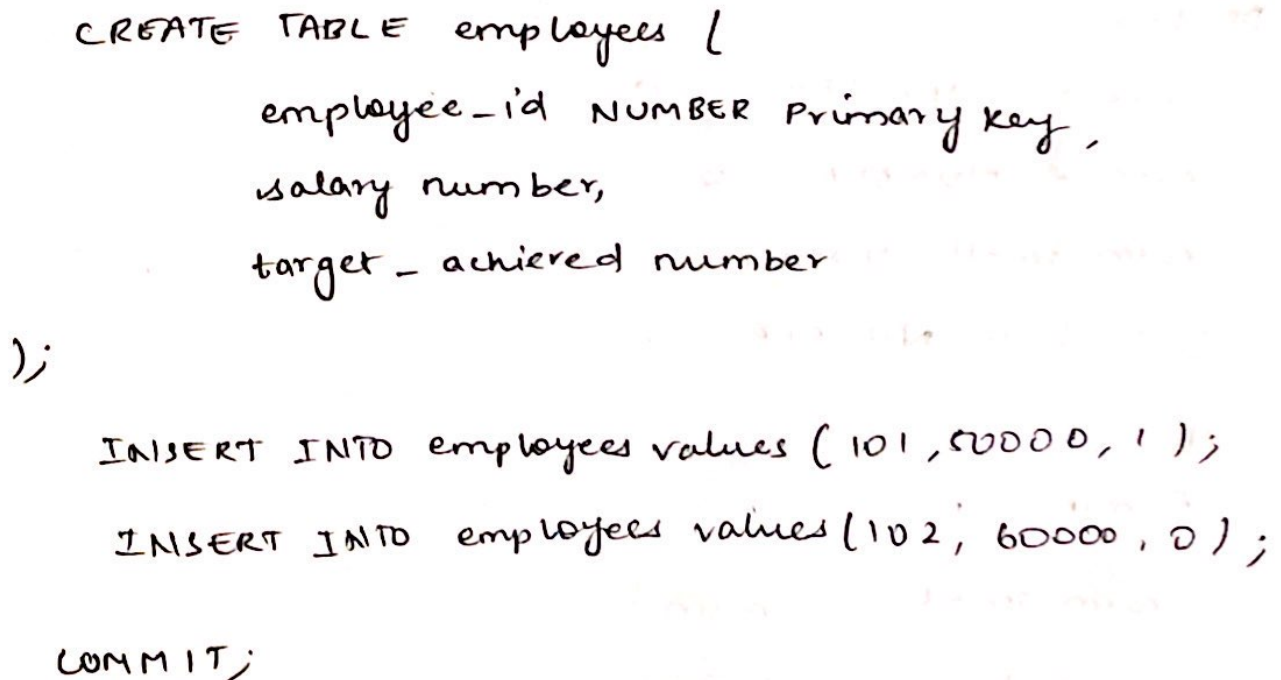 CREATE TABLE employees (
employee_id NUMBER Primary key,
salary number,
target_achieved number
);
INSERT INTO employees values (101, 50000, 1);
INSERT INTO employees values (102, 60000, 0);
COMMIT;